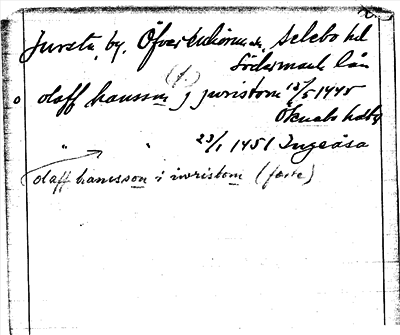 Jursta, by, Öfver Selebo hd
Södermanl. län
(1.)
o olaff hansson j juristom 18/5 1445
Öknebo hd
" " 23/1 1451 Ingeåsa
olaff hansson i iwristom (faste)